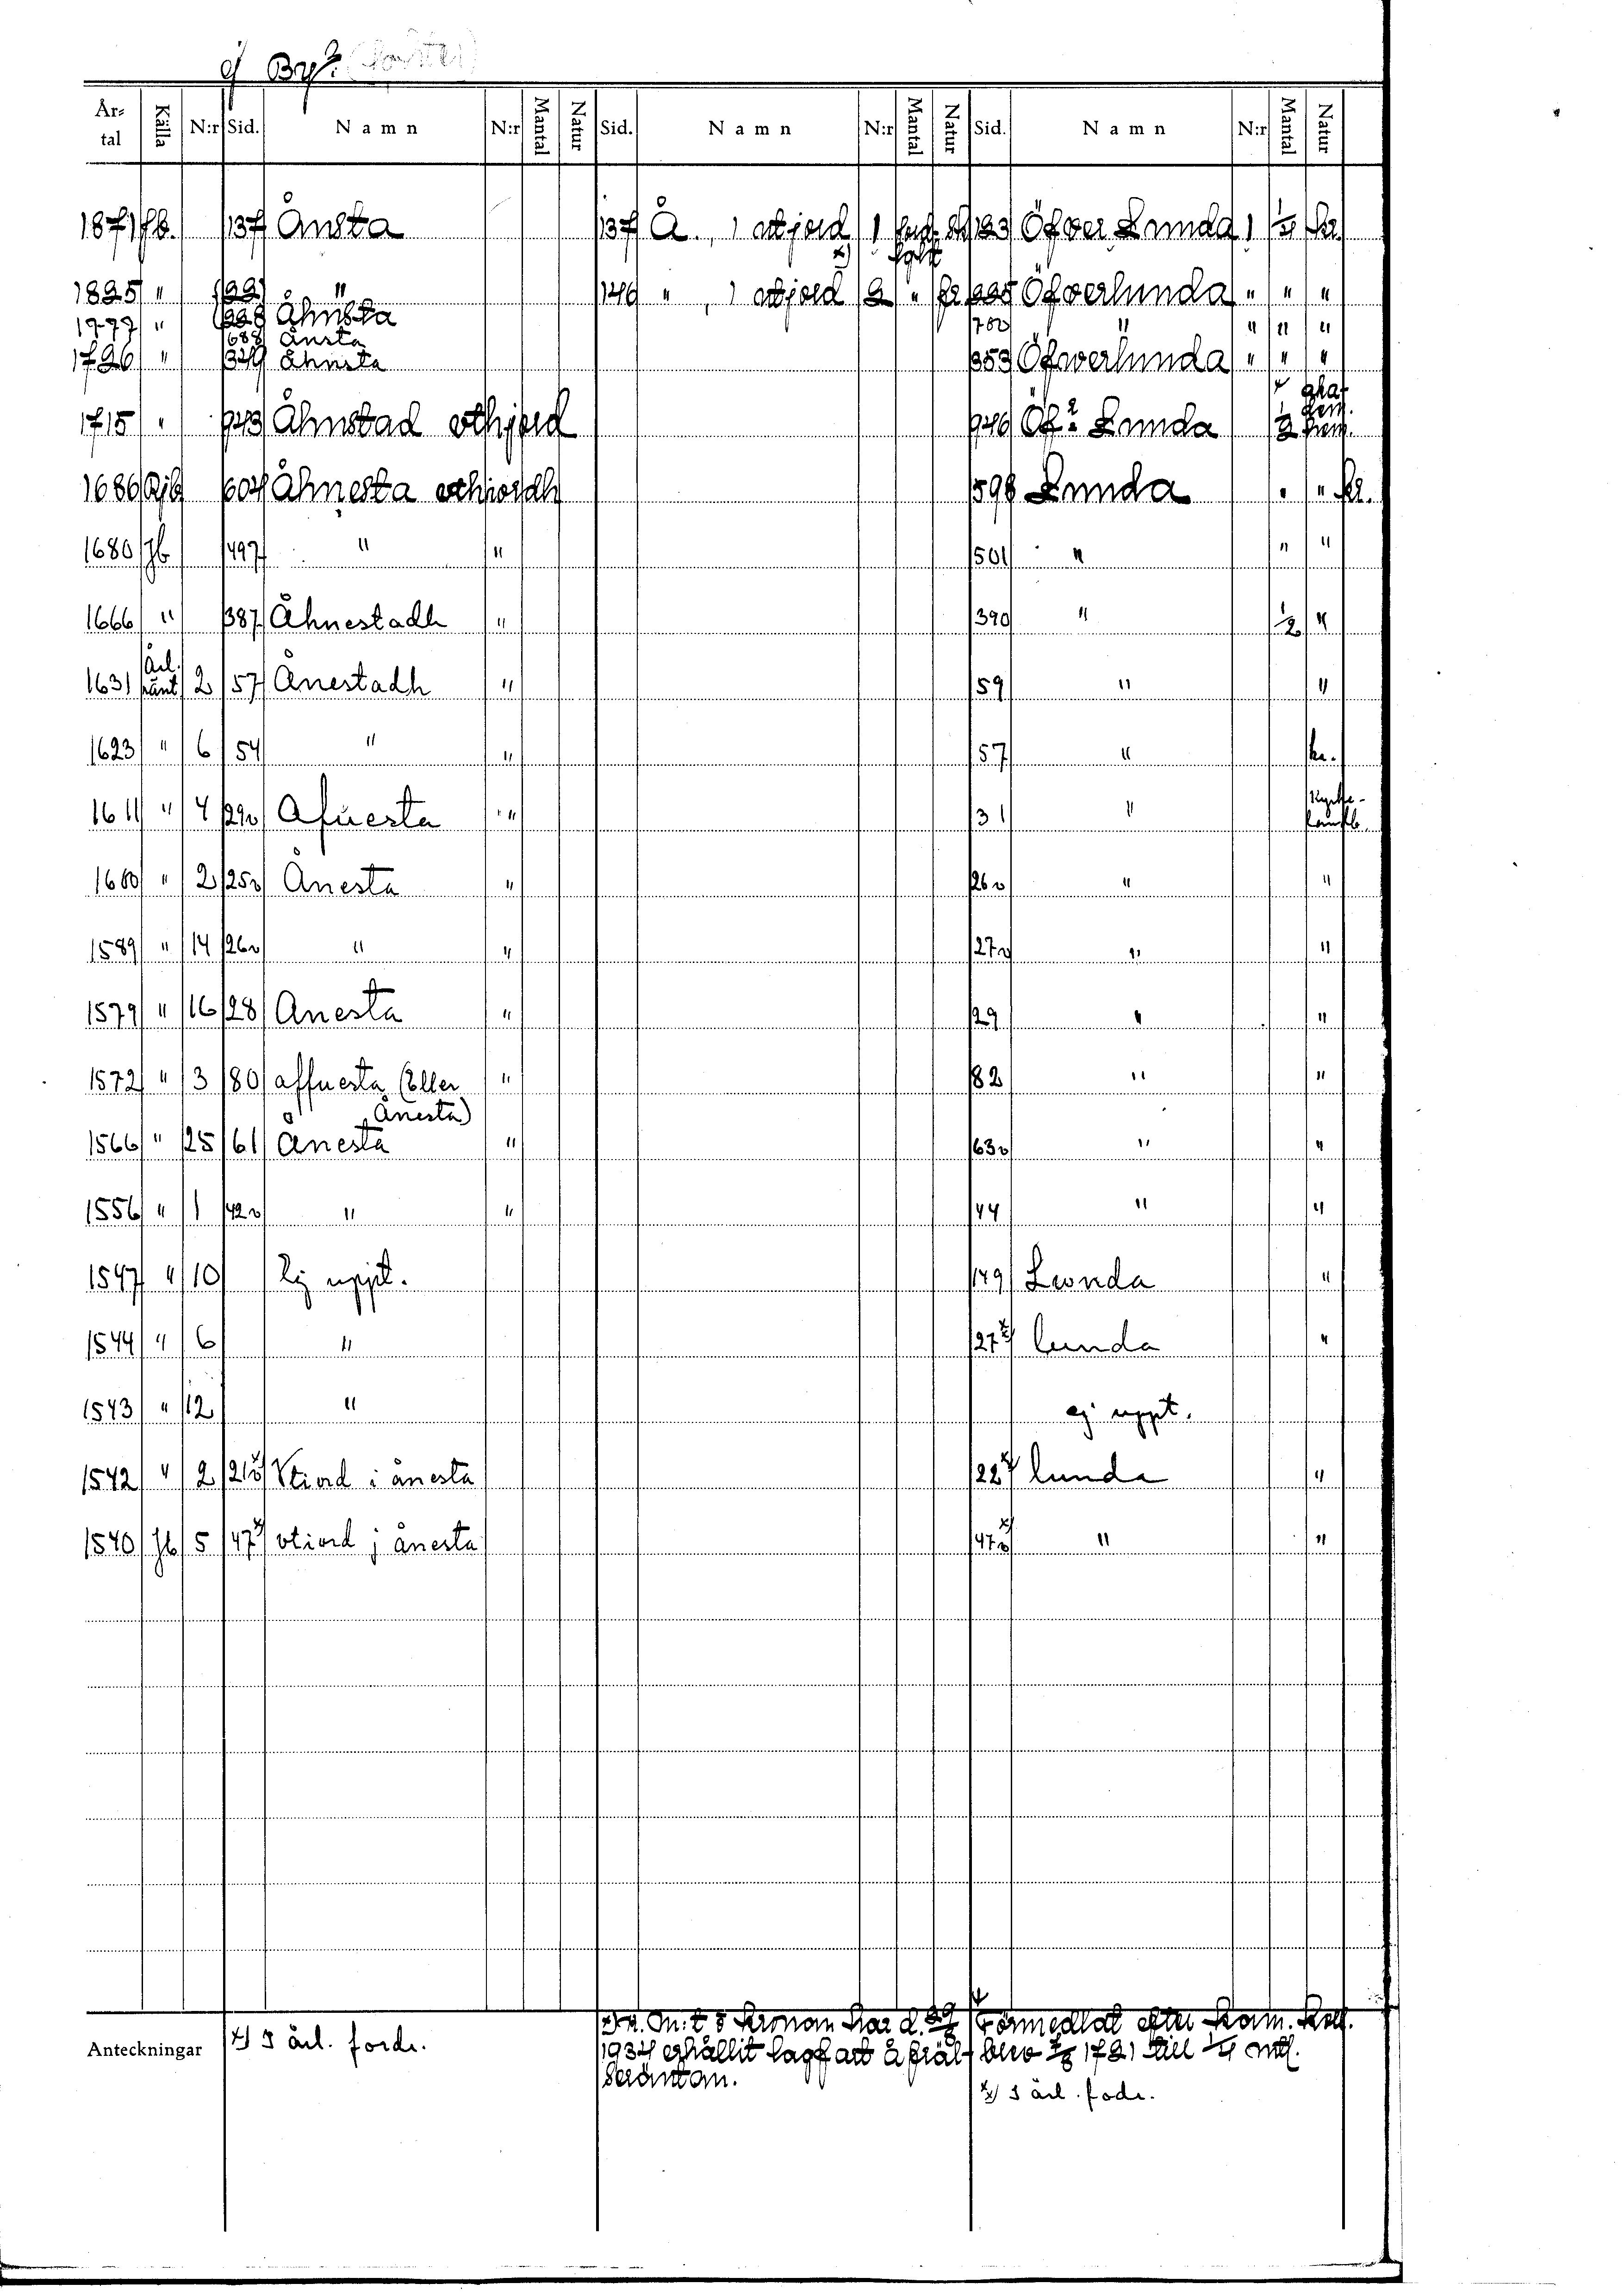 By?
Årtal Källa N:r Sid. Namn N:r Mantal Natur Sid. Namn N:r Mantal Natur Sid. Namn N:r Mantal Natur
1871 Jb. 137 Ånsta 137 Å., 1 utjord 1 Öfver Lunda 1 1/4 kr.
1825 " " 146 " , 1 utjord 2 " fr. Öfverlunda " " "
1777 " Åhnsta 700 " " " "
688 Ånsta
1726 " 349 Åhnsta 353 Öfwerlunda " " "
1715 " 943 Åhnstad othjord 946 Öfr Lunda 1/2 hem.
1686 604 Åhnesta othiordh 598 Lunda " " kr.
1680 Jb 497 " " 501 " " "
1666 " 387 Åhnestadh " 390 " 1/2 "
1631 Årl. ränt. 2 57 Ånestadh " 59 " "
1623 " 6 54 " " 57 " kr.
1611 " 4 29v Afuesta " 31 " Kyrke-
1600 " 2 25v Ånesta " 26v " "
1589 " 14 26v " " 27v " "
1579 " 16 28 Anesta " 29 " "
1572 " 3 80 affuesta (eller " 82 " "
Ånesta)
1566 " 25 61 Ånesta " 63v " "
1556 " 1 42v " " 44 " "
1547 " 10 Ej uppt. 149 Lwnda "
1544 " 6 " 27 x) lunda "
1543 " 12 " ej uppt.
1542 " 2 21v x) Vtiord i ånesta 22 x) lunda "
1540 Jb 5 47 x) vtiord j ånesta 47v x) " "
Anteckningar
x) I årl. fordr.
Kronan har d. 29/8
1934 erhållit lagfart å fräl-
seräntan.
Förmedlat efter Kam. Koll.
brev 7/8 1721 till 1/4 mtl.
x) I årl. fodr.